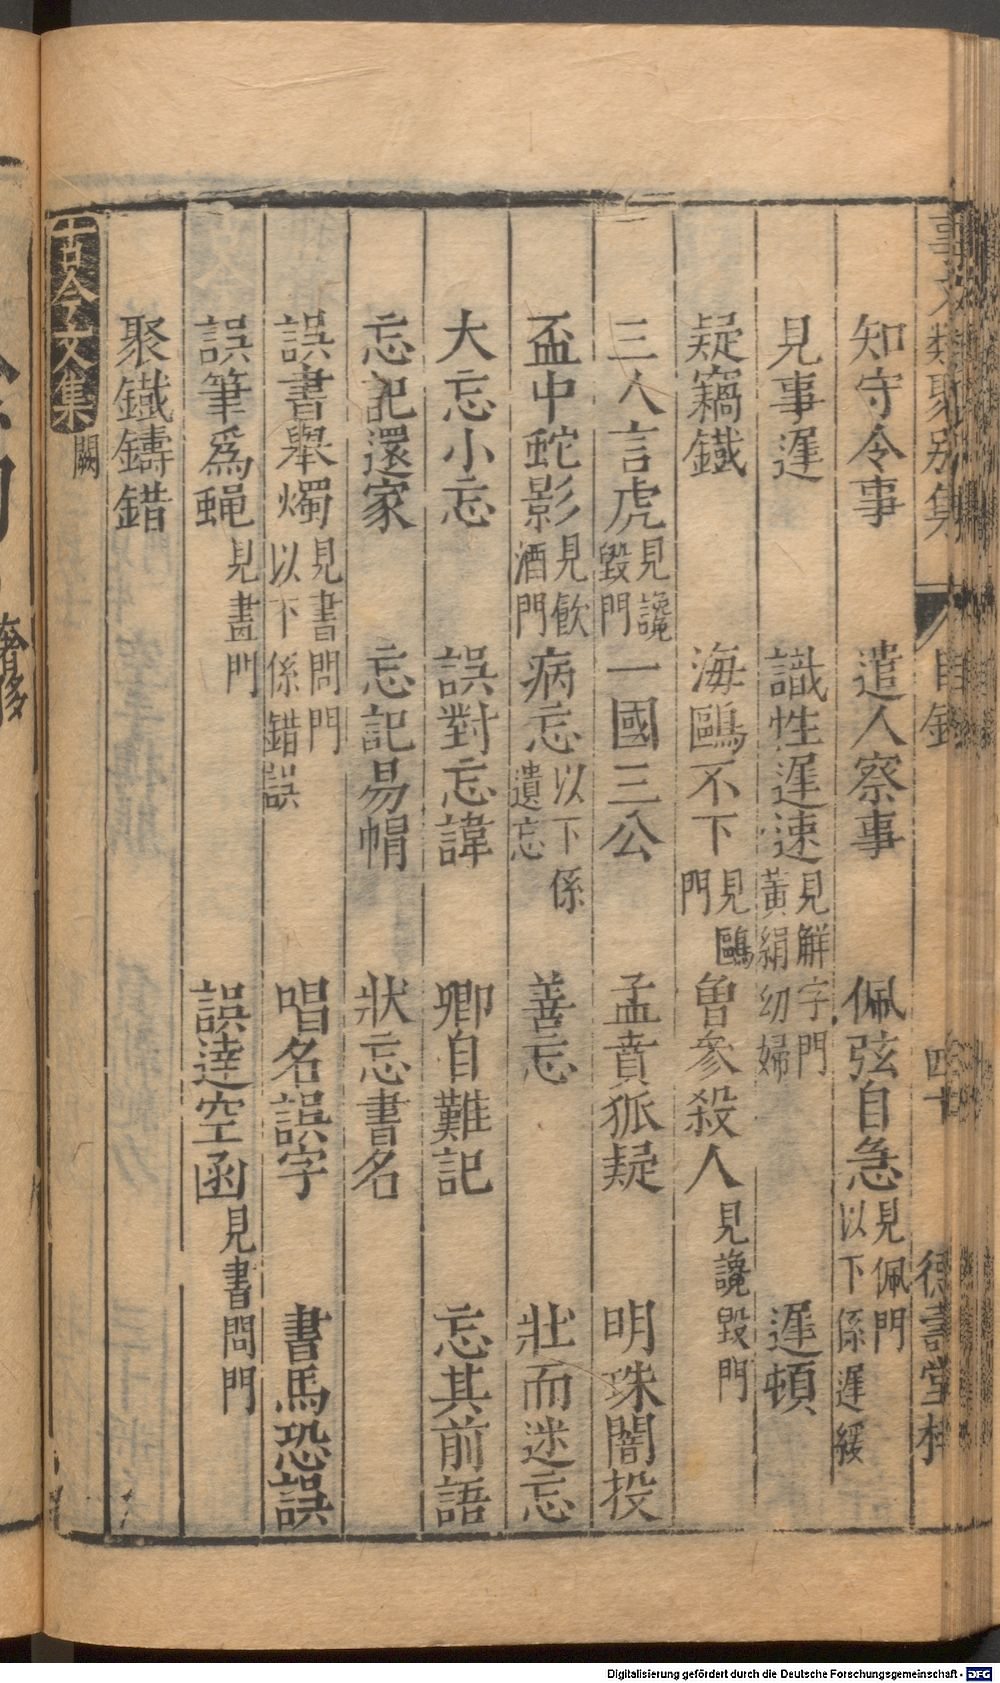 事文類聚別集 目錄 四十 德壽堂梓
知守令事 遣人察事 佩弦自急 見佩門以下係遲緩
見事遲 識性遲速 見解字門黃絹幼婦 遲頓
疑竊鐵 海鷗不下 見鷗門 曾參殺人 見讒毀門
三人言虎 見讒毀門 一國三公 孟賁狐疑 明珠闇投
盃中蛇影 見飲酒門 病忘 以下係遺忘 善忘 壯而迷忘
大忘小忘 誤對忘諱 卿自難記 忘其前語
忘記還家 忘記易帽 狀忘書名
誤書舉燭 見書問門以下係錯誤 唱名誤字 書馬恐誤
誤筆爲蝇 見畫門 誤達空函 見書問門
聚鐵鑄錯
古今文集 闕
奢侈
Digitalisierung gefördert durch die Deutsche Forschungsgemeinschaft - DFG